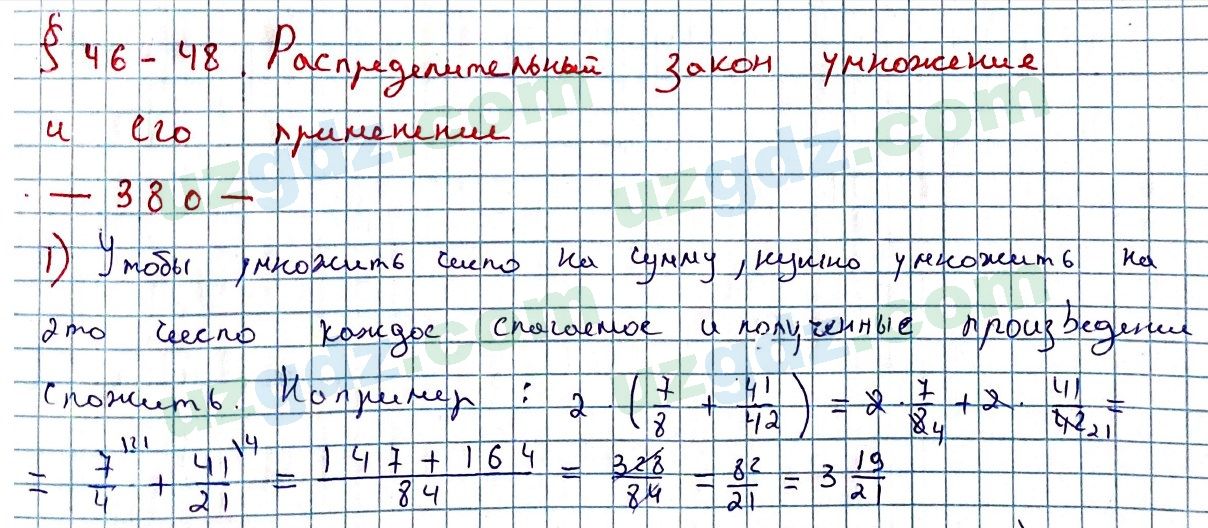 § 46 - 48. Распределительный закон умножение
и его применение
— 380 —
1) Чтобы умножить число на сумму, нужно умножить на
это число каждое слагаемое и полученные произведении
сложить. Например: 2 · (7/8 + 41/42) = 2 · 7/8 4 + 2 · 41/42 21 =
= 7/4 \21 + 41/21 \4 = 147 + 164/84 = 328/84 = 82/21 = 3 19/21
uzgdz.com
uzgdz.com
uzgdz.com
uzgdz.com